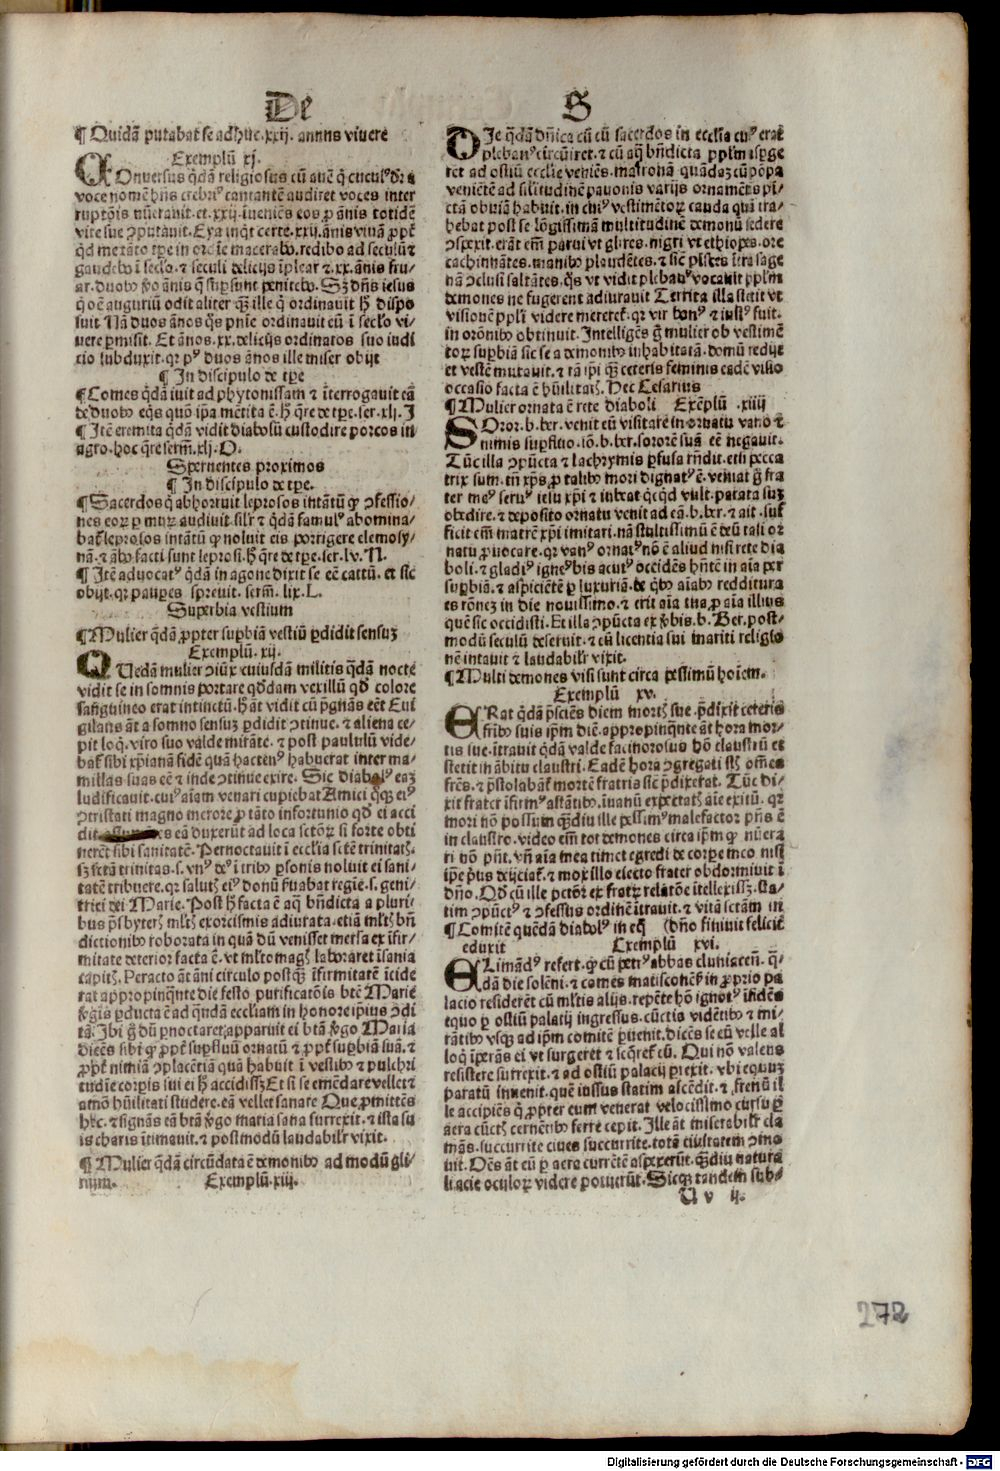 De S
¶ Quidã putabat se adhuc .xxij. annis vivere
Exemplũ xj.
COnversus q̃dã religiosus cũ avẽ q̃ cuculꝰ a
voce nomẽ hñs crebriꝰ cantantẽ audiret voces inter
ruptõis nũeravit. et .xxij. inveniẽs eos ꝓ ãnis totidẽ
vite sue ꝯputavit. Eya inq̃t certe .xxij. ãnis vivã
qd̃ me tãto tꝑe in ordĩe macerabo. redibo ad seculũ ⁊
gaudebo ĩ secło. ⁊ seculi delicijs ĩplear ⁊ .xx. ãnis fru/
ar. duobꝰ ãnis q̃ suꝑsunt penitebo. Sꝫ dñs iesus
q̃ oẽ auguriũ odit aliter q̃ ille q̃ ordinauit dispo
suit Nã duos ãnos q̃s pnĩe ordinavit eũ ĩ secło vi/
vere ꝑmisit. Et ãnos .xx. delicijs ordinatos suo iudi
cio subduxit. qꝛ pꝰ duos ãnos ille miser obijt
¶ In discipulo de tꝑe
¶ Comes q̃dã iuit ad phytonissam ⁊ ĩterrogavit eã
de duobꝰ eq̃s quõ ip̃a mẽtita ẽ. q̃re de tꝑe. ser. xlj. I
¶ Itẽ eremita q̃dã vidit diabolũ custodire porcos in
agro. hoc q̃re serm̃. xlj. O.
Spernentes proximos
¶ In discipulo de tꝑe.
¶ Sacerdos q̃ abhorruit leprosos intãtũ ꝙ ꝯfessio/
nes eoꝝ ꝑ muꝝ audivit. silr̃ ⁊ q̃dã famulꝰ abomina/
bat̃ leprosos intãtũ ꝙ noluit eis porrigere elemosy/
nã. ⁊ facti sunt leprosi. q̃re de tꝑe. ser. lv. N.
¶ Itẽ advocatꝰ q̃dã in agone dixit se eẽ cattũ. et sic
obijt. qꝛ pauꝑes sprevit. serm̃. lix. L.
Superbia vestium
¶ Mulier q̃dã ꝓpter suꝑbiã vestiũ ꝑdidit sensuꝫ
Exemplũ. xij.
QUedã mulier ꝯiũx cuiusdã militis q̃dã nocte
vidit se in somnis portare qd̃dam vexillũ qd̃ colore
sanguineo erat intinctũ. vidit cũ p̃gnãs eẽt Evi
gilans ãt a somno sensuꝫ ꝑdidit ꝯtinue. ⁊ aliena ce/
pit loq̃. viro suo valde mirãte. ⁊ post paululũ vide/
bat̃ sibi xp̃ianã fidẽ quã hactenꝰ habuerat inter ma/
millas suas eẽ ⁊ inde ꝯtinue exire. Sic diabolꝰ eaꝫ
ludificavit. cuiꝰ aĩam venari cupiebat Amici q̃ꝫ eiꝰ
ꝯtristati magno merore ꝓ tãto infortunio qd̃ ei acci
dit eã duxerũt ad loca sctõꝝ si forte obti
nerẽt sibi sanitatẽ. Pernoctavit ĩ ecclĩa sctẽ trinitatꝭ.
sꝫ sctã trinitas .s. vnꝰ deꝰ ĩ tribꝰ ꝑsonis noluit ei sani/
tatẽ tribuere. qꝛ salutꝭ eiꝰ donũ regie .s. geni/
trici dei Marie. Post facta ẽ aq̃ bñdicta a pluri/
bus p̃sbyterꝭ exorcismis adiurata. etiã bñ
dictionibꝰ roborata in quã dũ venisset mersa ex ĩfir/
mitate deterior facta ẽ. vt mĩto magꝭ laboraret ĩsania
capitꝭ. Peracto ãt ãni circulo postq̃ ĩfirmitatẽ ĩcide
rat appropinq̃nte die festo purificatõis btẽ Marie
ꝑducta ẽ ad q̃ndã eccliam in honorẽ ipsius ꝯdi
tã. Ibi g̃ dũ ꝑnoctaret, apparuit ei btã Maria
dicẽs sibi ꝙ suꝑfluũ ornatũ ⁊ suꝑbiã suã. ⁊
nimiã ꝯplacẽtiã quã habuit ĩ vestibꝰ ⁊ pulchri
tudĩe corpis sui ei accidissꝫ Et si se emẽdare vellet ⁊
amõ hũilitati studere. eã vellet sanare Que ꝓmittẽs
⁊ signãs eã btã maria sana surrexit. ⁊ ista su
is charis ĩtimavit. ⁊ postmodũ laudabilr̃ vixit.
¶ Mulier q̃dã circũdata ẽ demonibꝰ ad modũ gli/
rium. Exemplũ. xiij.
DIe q̃dã dñica cũ sacerdos in ecclĩa cuiꝰ erat
plebanꝰ circũiret. ⁊ cũ aq̃ bñdicta pplm̃ aspge
ret ad ostiũ ecclĩe veniẽs. matronã quãdaꝫ cũ põpa
veniẽtẽ ad silĩtudinẽ pavonis varijs ornamẽtis pi/
ctã obviã habuit. in cuiꝰ vestimẽtoꝝ cauda quã tra/
hebat post se lõgissimã multitudinẽ demonũ sedere
ꝯspexit. erãt em̃ parui vt glires. nigri vt ethiopes. ore
cachinnãtes. manibꝰ plaudẽtes. ⁊ sic̃ pisces ĩtra sage
nã ꝯclusi saltãtes. q̃s vt vidit plebanꝰ vocavit pplm̃
demones ne fugerent adiuravit Territa illa stetit vt
visionẽ ppli videre mereret̃. qꝛ vir bonꝰ ⁊ iustꝰ fuit.
in orõnibꝰ obtinuit. Intelligẽs g̃ mulier ob vestimẽ
toꝝ suꝑbiã sic se a demonibꝰ inhabitatã. domũ redijt
et vestẽ mutavit. ⁊ tã ip̃i q̃ ceteris feminis eadẽ visio
occasio facta ẽ hũilitatꝭ. Hec Cesarius
¶ Mulier ornata ẽ rete diaboli Exẽplũ .xiiij
SOror .b. ber. venit eũ visitare in ornatu vano ⁊
nimis suꝑfluo. iõ .b. ber. sororẽ suã eẽ negavit.
Tũc illa ꝯpũcta ⁊ lachrymis ꝑfusa rñdit. etsi pecca
trix sum. tñ xp̃s ꝓ talibꝰ mori dignatꝰ ẽ. veniat g̃ fra
ter meꝰ servꝰ iesu xp̃i ⁊ iubeat q̃cqd̃ vult. parata suꝫ
obedire. ⁊ deposito ornatu venit ad eã .b. ber. ⁊ ait. suf
ficit em̃ matrẽ xp̃i imitari. nã stultissimũ ẽ deũ tali or
natu ꝓvocare. qꝛ vanꝰ ornatꝰ nõ ẽ aliud nisi rete dia
boli. ⁊ gladiꝰ igneꝰ bis acutꝰ occidẽs hñtẽ in aĩa per
suꝑbiã. ⁊ aspiciẽtẽ ꝑ luxuriã. de q̃bꝰ aĩabꝰ redditura
es rõnẽꝫ in die novissimo. ⁊ erit aĩa tua ꝓ aĩa illius
quẽ sic occidisti. Et illa ꝯpũcta ex .b. Ber. post/
modũ seculũ deseruit. ⁊ cũ licentia sui mariti religio
nẽ intavit ⁊ laudabilr̃ vixit.
¶ Multi demones visi sunt circa pessimũ hoĩem.
Exemplũ xv.
ERat q̃dã p̃sciẽs diem mortꝭ sue. p̃dixit ceteris
fr̃ibꝰ suis ip̃m diẽ. appropinq̃nte ãt hora mor/
tis sue. ĩtravit q̃dã valde facinorosus hõ claustrũ et
stetit in ãbitu claustri. Eadẽ hora ꝯgregati omẽs
fr̃es. ⁊ p̃stolabãt̃ mortẽ fratris sic̃ p̃dixerat. Tũc di/
xit frater ĩfirmꝰ astãtibꝰ. ĩvanũ expectatꝭ aĩe exitũ. qꝛ
mori nõ possum q̃diu ille pessimꝰ malefactor pñs ẽ
in claustro. video em̃ tot demones circa ip̃m ꝙ nũera
ri nõ pñt. vñ aĩa mea timet egredi de corpe meo nisi
ip̃e p̃us deijciat̃. ⁊ mox illo eiecto frater obdormivit ĩ
dño. Qd̃ cũ ille pctõr ex fratꝝ relatõe ĩtellexissꝫ. sta/
tim ꝯpũctꝰ ⁊ ꝯfessus ordinẽ ĩtravit. ⁊ vitã sctãm in
¶ Comitẽ quẽdã diabolꝰ in eq̃ (dño finivit feliciẽ
eduxit Exemplũ xvi.
ELimãdꝰ refert. ꝙ cũ petrꝰ abbas cluniaceñ. q̃/
dã die solẽni. ⁊ comes matisconẽsis in ꝓprio pa
lacio resideret cũ mĩtis alijs. repẽte hõ ignotꝰ ĩsidẽs
equo ꝑ ostiũ palatij ingressus. cũctis vidẽtibꝰ ⁊ mi/
rãtibꝰ vsqꝫ ad ip̃m comitẽ ꝑvenit. dicẽs se eũ velle al
loq̃. ĩperãs ei vt surgeret ⁊ seq̃ret̃ eũ. Qui nõ valens
resistere surrexit. ⁊ ad ostiũ palacij ꝑrexit. vbi equuꝫ
paratũ invenit. quẽ iussus statim ascẽdit. ⁊ frenũ il
le accipiẽs q̃ ꝓpter eum venerat velocissimo cursu ꝑ
aera cũctꝭ cernẽtibꝰ ferre cepit. Ille ãt miserabilr̃ cla
mãs. succurrite cives succurrite. totã civitatem ꝯmo
vit. Oẽs ãt eũ ꝑ aera currẽtẽ aspexerũt. q̃diu natura
li acie oculoꝝ videre potuerũt. Sicqꝫ tandem sub/
U v ij.
272
Digitalisierung gefördert durch die Deutsche Forschungsgemeinschaft - DFG